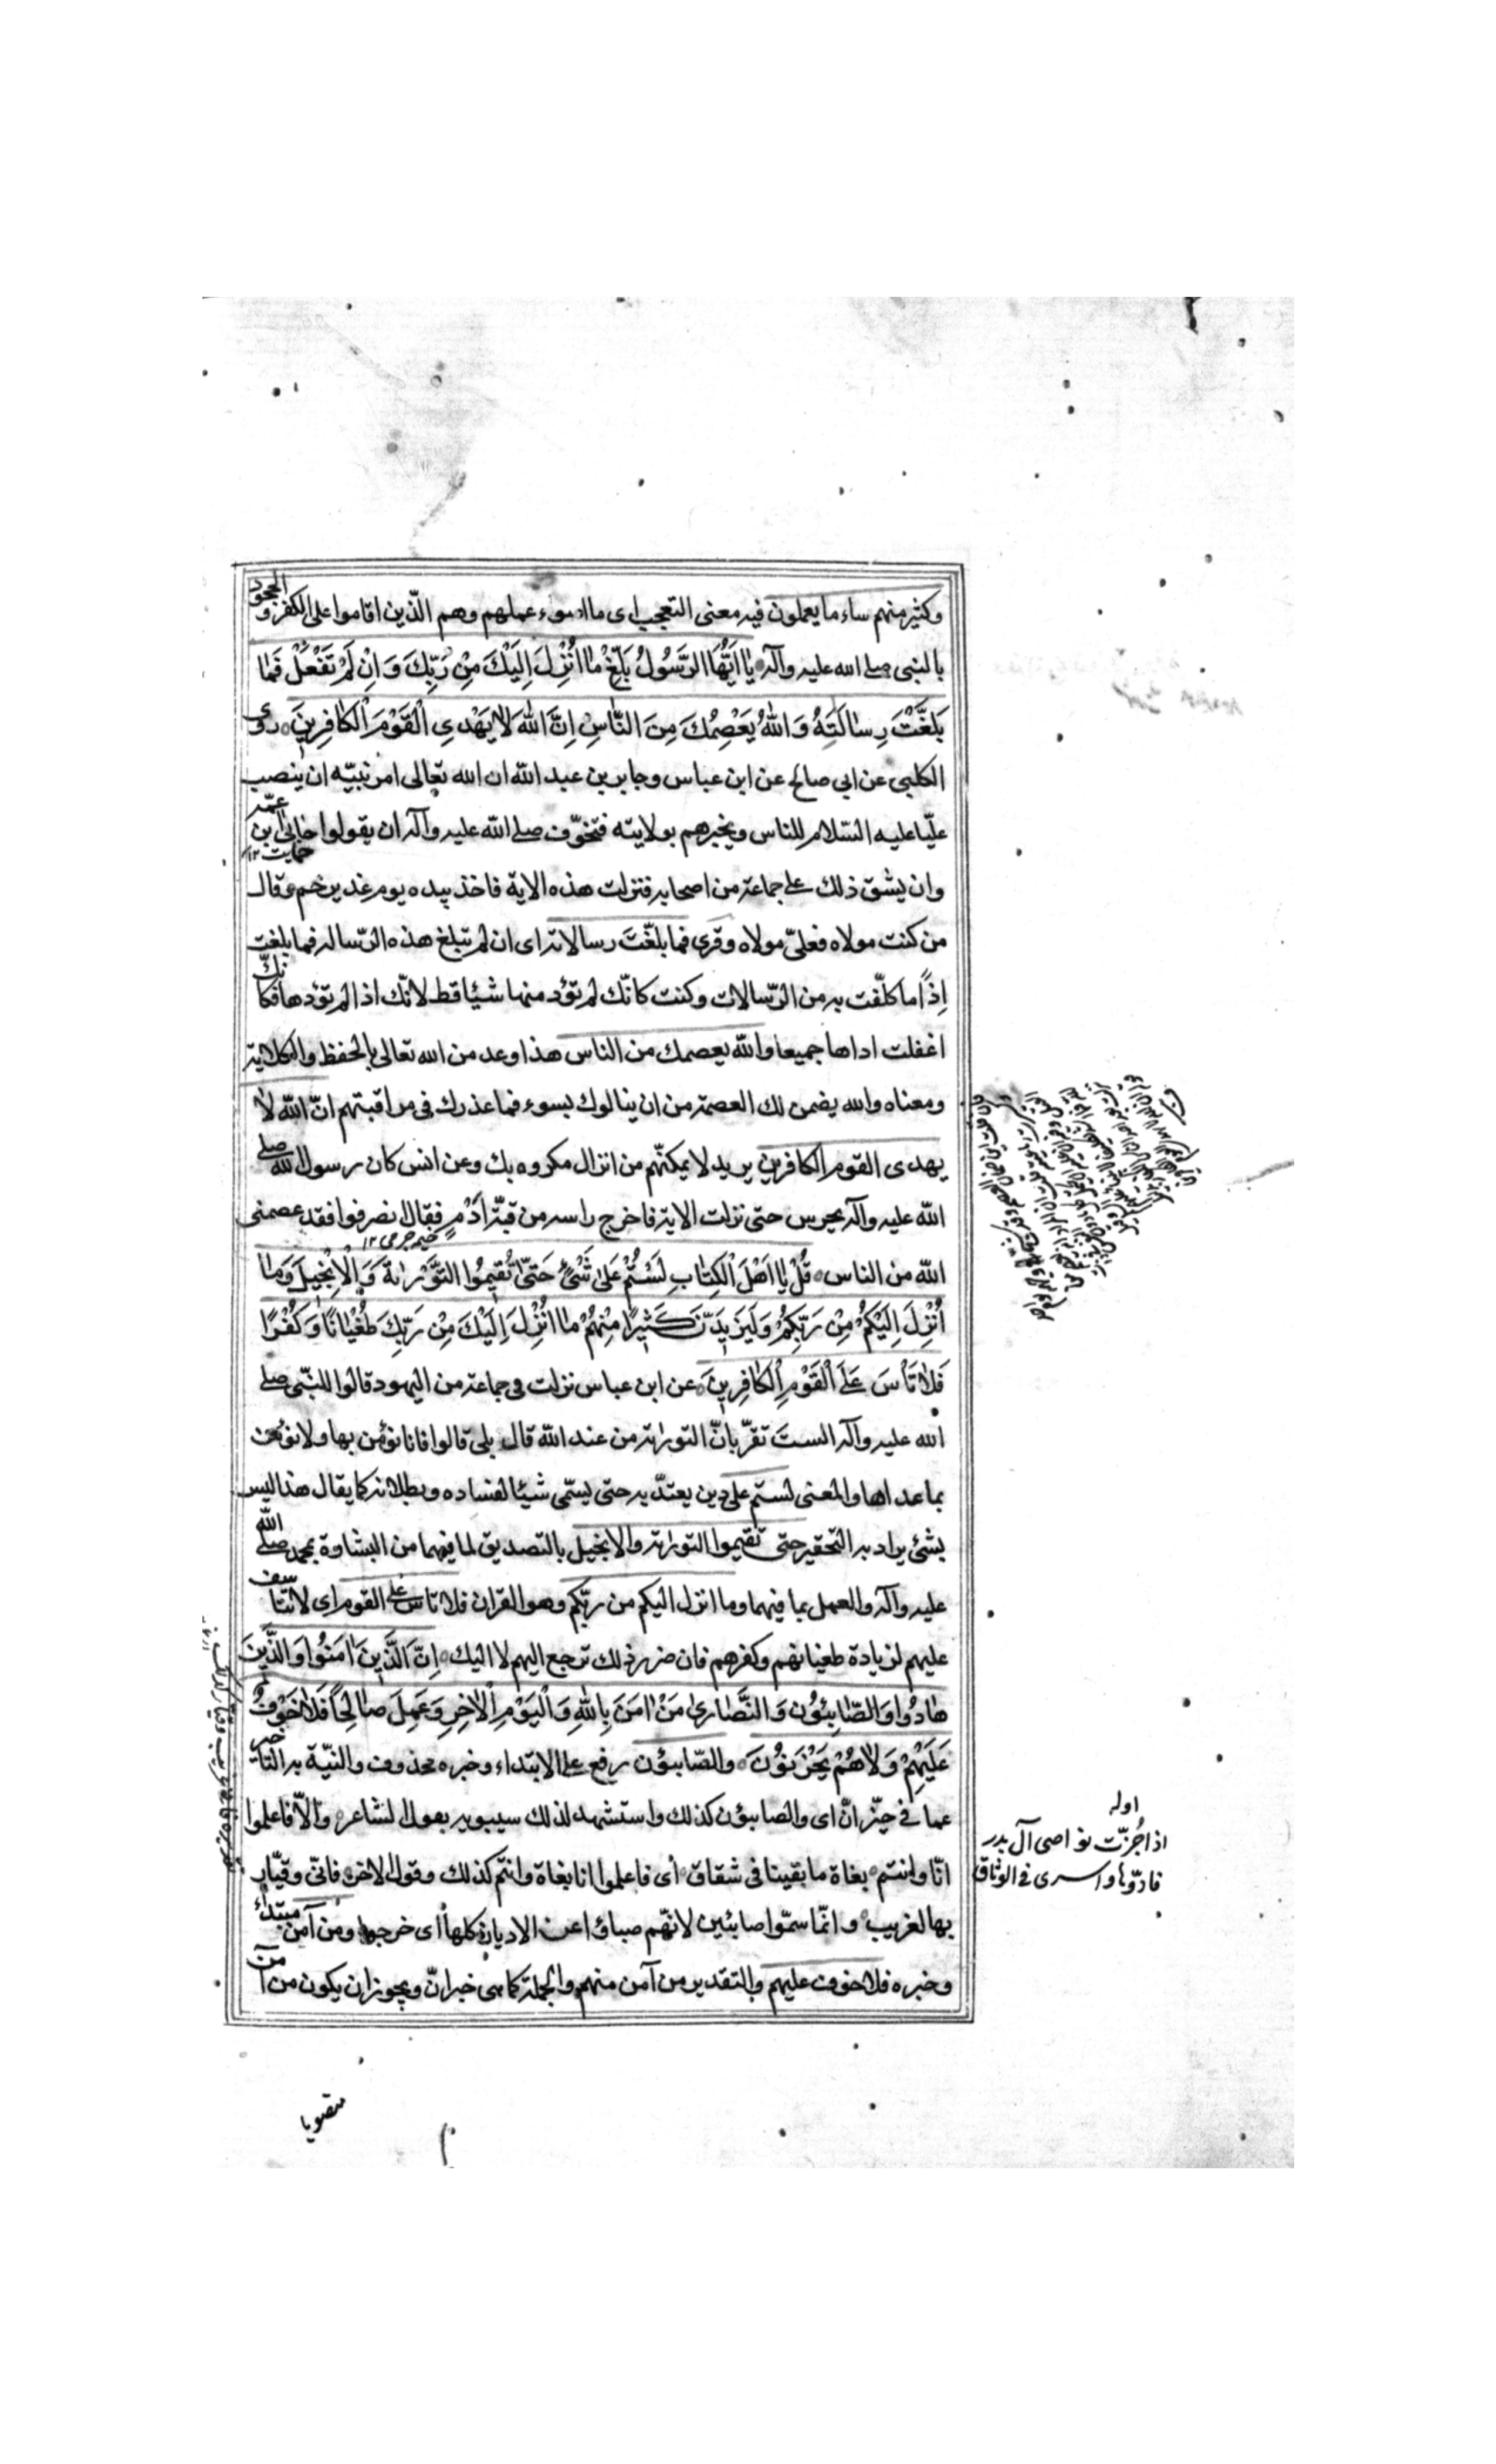 وكثير منهم ساء ما يعملون فيه معنى التعجب اى ما اسوء عملهم وهم الّذين اقاموا على الكفر و الجحود
بالنبى صلى الله عليه وآله يٰا اَيُّهَا الرَّسُولُ بَلِّغْ مٰا اُنْزِلَ اِلَيْكَ مِنْ رَبِّكَ وَ اِنْ لَمْ تَفْعَلْ فَمٰا
بَلَّغْتَ رِسٰالَتَهُ وَ اللّٰهُ يَعْصِمُكَ مِنَ النّٰاسِ اِنَّ اللّٰهَ لاٰ يَهْدِي الْقَوْمَ الْكٰافِرِينَ روى
الكلبى عن ابي صالح عن ابن عباس وجابر بن عبد اللّه ان الله تعالى امر نبيّه ان ينصب
عليّا عليه السّلام للناس ويخبرهم بولايته فتخوّف صلى اللّه عليه وآله ان يقولوا حابى ابن عمّه
حمايت ١٢
وان يشق ذلك على جماعة من اصحابه فنزلت هذه الاية فاخذ بيده يوم غدير خم وقال
من كنت مولاه فعلىّ مولاه وقرى فما بلّغت رسالاته اى ان لم تبلغ هذه الرّسالة فما بلغت
اِذًا ما كلّفت به من الرّسالات وكنت كانّك لم تؤد منها شيئا قط لانّك اذا لم تؤدها فكانّك
اغفلت اداها جميعا واللّه يعصمك من الناس هذا وعد من الله تعالى بالحفظ والكلاية
ومعناه والله يضمن لك العصمة من ان ينالوك بسوء فما عذرك فى مراقبتهم انّ اللّه لا
يهدى القوم الكافرين يريد لا يمكنّهم من انزال مكروه بك وعن انس كان رسول اللّه صلى
اللّه عليه وآله يحرس حتى نزلت الاية فاخرج راسه من قبّة اَدَم فقال انصرفوا فقد عصمنى
خيمه چرمى ١٢
اللّه من الناس قُلْ يٰا اَهْلَ الْكِتٰابِ لَسْتُمْ عَلىٰ شَىْءٍ حَتّٰى تُقِيمُوا التَّوْرٰاةَ وَ الْاِنْجِيلَ وَمٰا
اُنْزِلَ اِلَيْكُمْ مِنْ رَبِّكُمْ وَلَيَزِيدَنَّ كَثِيرًا مِنْهُمْ مٰا اُنْزِلَ اِلَيْكَ مِنْ رَبِّكَ طُغْيٰانًا وَ كُفْرًا
فَلاٰ تَأْسَ عَلَى الْقَوْمِ الْكٰافِرِينَ عن ابن عباس نزلت فى جماعة من اليهود قالوا للنبّى صلى
الله عليه وآله الستَ تقرّ بانّ التوراة من عند اللّه قال بلى قالوا فانا نؤمن بها ولا نؤمن
بما عداها والمعنى لستم على دين يعتدّ به حتى يسمّى شيئا لفساده وبطلانه كما يقال هذا ليس
بشئ يراد به التحقير حتى تقيموا التوراة والانجيل بالتصديق لما فيهما من البشارة بمحمد صلى اللّه
عليه وآله والعمل بما فيهما وما انزل اليكم من ربّكم وهو القران فلا تاس على القوم اى لا تتاسف
عليهم لزيادة طغيانهم وكفرهم فان ضرر ذلك ترجع اليهم لا اليك اِنَّ الَّذِينَ اٰمَنُوا وَ الَّذِينَ
هٰادُوا وَ الصّٰابِئُونَ وَ النَّصٰارىٰ مَنْ اٰمَنَ بِاللّٰهِ وَ الْيَوْمِ الْاٰخِرِ وَ عَمِلَ صٰالِحًا فَلاٰ خَوْفٌ
عَلَيْهِمْ وَ لاٰ هُمْ يَحْزَنُونَ والصّابئون رفع على الابتداء وخبره محذوف والنيّة به التاخير
عما فى حيّز انّ اى والصابئون كذلك واستشهد لذلك سيبويه بقول الشاعر والّا فاعلموا
انّا وانتم بغاة ما بقينا فى شقاق اى فاعلموا انا بغاة وانتم كذلك وقول الاخر فانّى وقيّار
بها لغريب وانّما سمّوا صابئين لانهّم صباؤا عن الاديان كلها اى خرجوا ومن آمن مبتدأ
وخبره فلا خوف عليهم والتقدير من آمن منهم والجملة كما هى خبر انّ ويجوز ان يكون من آمن
اوله
اذا جُزّت نواصى آل بدر
فادّوها واسرى فى الوثاق